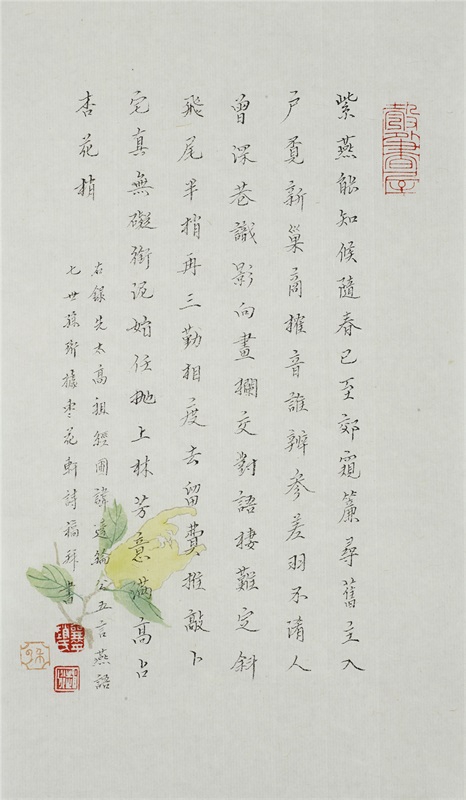 紫燕能知候隨春已至郊窺簾尋舊主入
戶覓新巢商搉音誰辨參差羽不淆人
曾深巷識影向畫欄交對語棲難定斜
飛尾半捎再三勤相度去留費推敲卜
宅真無礙銜泥始任拋上林芳意滿高占
杏花梢
右錄先太高祖經圃諱公五言燕語
七世孫珩據棗花軒詩稿拜書